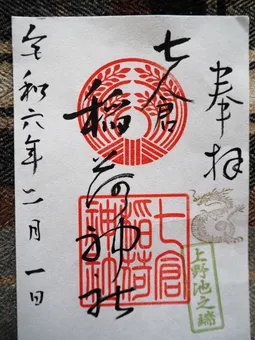 奉拝
七倉
稲荷神社
七倉
稲荷
神社
上野池之端
令和六年二月一日